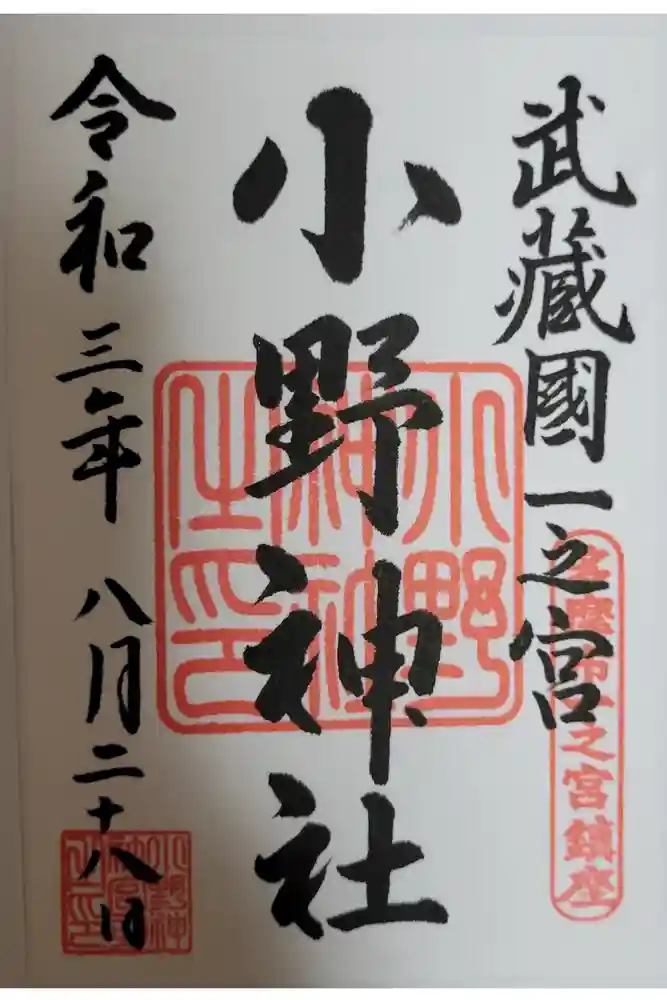 武藏國一之宮
多摩市一之宮鎮座
小野神社
小野神社之印
令和三年八月二十八日